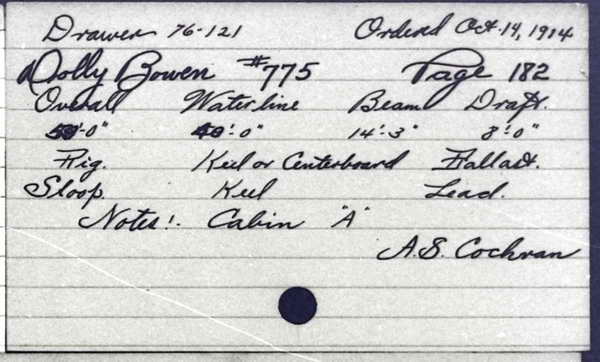 Drawer 76-121 Ordered Oct. 14, 1914
Dolly Bowen #775 Page 182
Overall Waterline Beam Draft.
-0" -0" 14'-3" 8'-0"
Rig. Keel or Centerboard Ballast.
Sloop. Keel Lead.
Notes!. Cabin "A"
A.S. Cochran